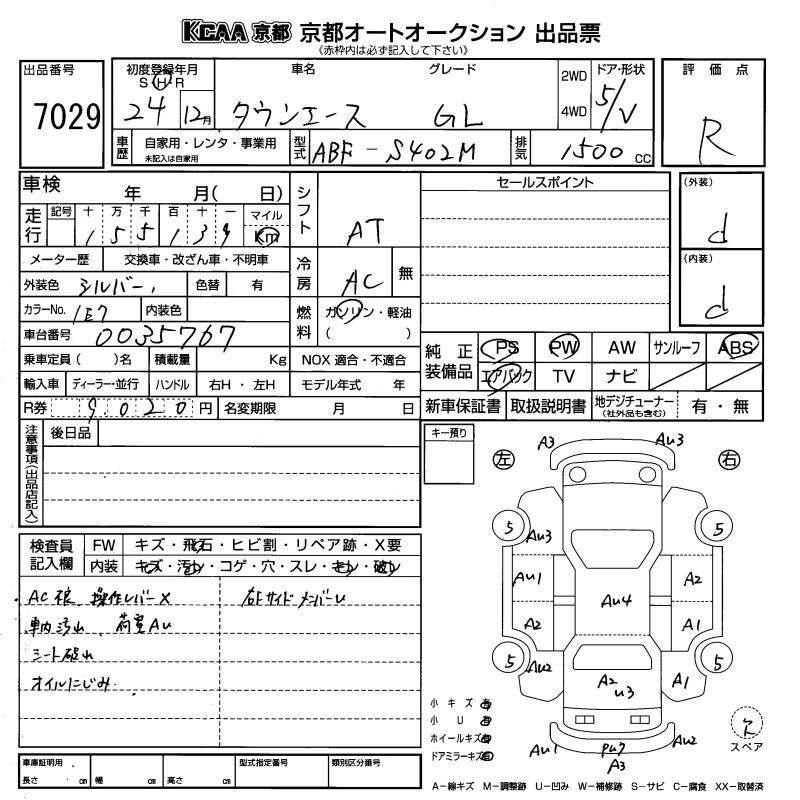 KCAA 京都 京都オートオークション 出品票
《赤枠内は必ず記入して下さい》
出品番号
7029
初度登録年月
S H R
24 12月
車名
タウンエース
グレード
GL
2WD
4WD
ドア・形状
5/V
評価点
R
車歴
自家用・レンタ・事業用
未記入は自家用
型式
ABF-S402M
排気
1500 cc
車検 年 月( 日)
走行
記号 十 万 千 百 十 一
155139
マイル
Km
メーター歴 交換車・改ざん車・不明車
外装色 シルバー
色替 有
カラーNo. 1E7 内装色
車台番号 0035767
乗車定員 ( )名 積載量 Kg
輸入車 ディーラー・並行 ハンドル 右H・左H
R券 9020円 名変期限 月 日
シフト
AT
冷房
AC 無
燃料
ガソリン・軽油
( )
NOX 適合・不適合
モデル年式 年
セールスポイント
(外装)
d
(内装)
d
純正装備品
PS PW AW サンルーフ ABS
エアバック TV ナビ
新車保証書 取扱説明書 地デジチューナー
(社外品も含む)
有・無
注意事項(出品店記入)
後日品
キー預り
左 右
A3 Au3
5 5
Au3
Au1 A2
Au4
A2 A1
5 5
Au2
A2
u3
A1
Au1 A3 Au2
小キズ 有
小U 有
ホイールキズ 有
ドアミラーキズ 有
スペア
検査員記入欄
FW キズ・飛石・ヒビ割・リペア跡・X要
内装 キズ・汚れ・コゲ・穴・スレ・キレ・破レ
AC 操作レバーX
車内汚れ、荷室Au
シート破れ
オイルにじみ
右Fサイドメンバーu
車庫証明用
長さ cm 幅 cm 高さ cm
型式指定番号
類別区分番号
A-線キズ M-調整跡 U-凹み W-補修跡 S-サビ C-腐食 XX-取替済